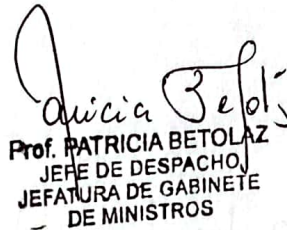 Patricia Betolaz
Prof. PATRICIA BETOLAZ
JEFE DE DESPACHO
JEFATURA DE GABINETE
DE MINISTROS